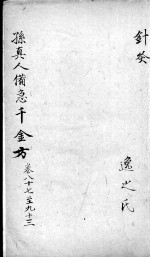 針癸
逸之氏
孫真人備急千金方 卷八十七至九十三